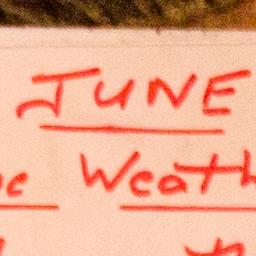 JUNE
Weath